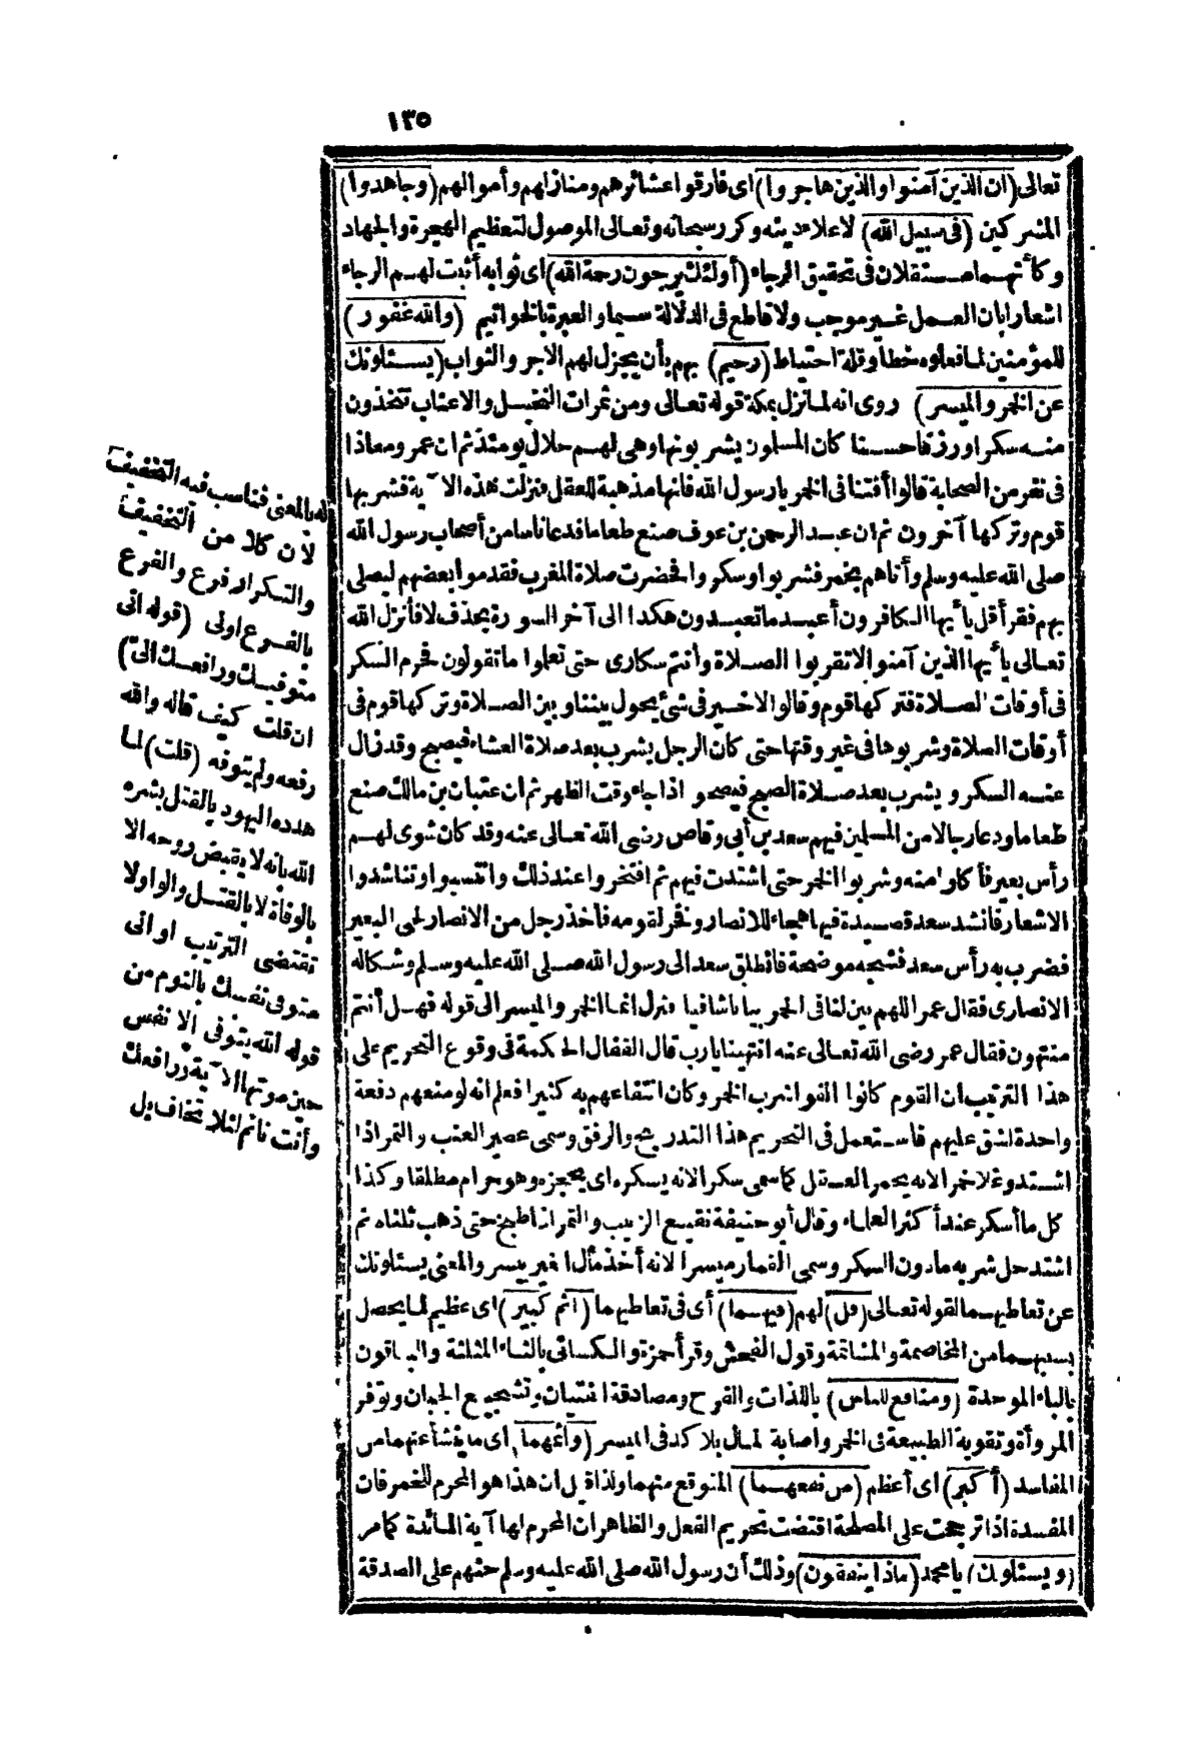 ١٣٥
تعالى (ان الذين آمنوا والذين هاجروا) اى فارقوا عشائرهم ومنازلهم وأموالهم (وجاهدوا)
المشركين (فى سبيل الله) لاعلاء دينه وكرر سبحانه وتعالى الموصول لتعظيم الهجرة والجهاد
وكأنهما مستقلان فى تحقيق الرجاء (أولئك يرجون رحمة الله) اى ثوابه أثبت لهم الرجاء
اشعارا بان العمل غير موجب ولا قاطع فى الدلالة سيما والعبرة بالخواتيم (والله غفور)
للمؤمنين لما فعلوه خطأ وقلة احتياط (رحيم) بهم بأن يجزل لهم الاجر والثواب (يسئلونك
عن الخمر والميسر) روى انه لما نزل بمكة قوله تعالى ومن ثمرات النخيل والاعناب تتخذون
منه سكرا ورزقا حسنا كان المسلمون يشربونها وهى لهم حلال يومئذ ثم ان عمر ومعاذا
فى نفر من الصحابة قالوا أفتنا فى الخمر يارسول الله فانها مذهبة للعقل فنزلت هذه الآية فشربها
قوم وتركها آخرون ثم ان عبد الرحمن بن عوف صنع طعاما فدعا ناسا من أصحاب رسول الله
صلى الله عليه وسلم وأتاهم بخمر فشربوا وسكروا فحضرت صلاة المغرب فقدموا بعضهم ليصلى
بهم فقرأ قل يا أيها الكافرون أعبد ما تعبدون هكذا الى آخر السورة بحذف لا فأنزل الله
تعالى يا أيها الذين آمنوا لا تقربوا الصلاة وأنتم سكارى حتى تعلموا ما تقولون فحرم السكر
فى أوقات الصلاة فتركها قوم وقالوا لا خير فى شئ يحول بيننا وبين الصلاة وتركها قوم فى
أوقات الصلاة وشربوها فى غير وقتها حتى كان الرجل يشرب بعد صلاة العشاء فيصبح وقد زال
عنه السكر ويشرب بعد صلاة الصبح فيصحو اذا جاء وقت الظهر ثم ان عتبان بن مالك صنع
طعاما ودعا رجالا من المسلمين فيهم سعد بن أبى وقاص رضى الله تعالى عنه وقد كان شوى لهم
رأس بعير فأكلوا منه وشربوا الخمر حتى اشتدت فيهم ثم افتخروا عند ذلك وانتسبوا وتناشدوا
الاشعار فانشد سعد قصيدة فيها هجاء للانصار وفخر لقومه فأخذ رجل من الانصار لحى البعير
فضرب به رأس سعد فشجه موضحة فانطلق سعد الى رسول الله صلى الله عليه وسلم وشكا له
الانصارى فقال عمر اللهم بين لنا فى الخمر بيانا شافيا فنزل انما الخمر والميسر الى قوله فهل أنتم
منتهون فقال عمر رضى الله تعالى عنه انتهينا يارب قال القفال الحكمة فى وقوع التحريم على
هذا الترتيب ان القوم كانوا ألفوا شرب الخمر وكان انتفاعهم به كثيرا فعلم انه لو منعهم دفعة
واحدة لشق عليهم فاستعمل فى التحريم هذا التدريج والرفق وسمى عصير العنب والتمر اذا
اشتد وغلا خمرا لانه يخمر العقل كما سمى سكرا لانه يسكره اى يحجزه وهو حرام مطلقا وكذا
كل ما أسكر عند أكثر العلماء وقال أبو حنيفة نقيع الزبيب والتمر اذا طبخ حتى ذهب ثلثاه ثم
اشتد حل شربه مادون السكر وسمى القمار ميسرا لانه أخذ مال الغير بيسر والمعنى يسئلونك
عن تعاطيهما لقوله تعالى (قل) لهم (فيهما) أى فى تعاطيهما (اثم كبير) اى عظيم لما يحصل
بسببهما من المخاصمة والمشاتمة وقول الفحش وقرأ حمزة والكسائى بالثاء المثلثة والباقون
بالباء الموحدة (ومنافع للناس) باللذات والفرح ومصادقة الفتيان وتشجيع الجبان وتوفر
المروأة وتقوية الطبيعة فى الخمر واصابة المال بلا كد فى الميسر (واثمهما) اى ما ينشأ عنهما من
المفاسد (أكبر) اى أعظم (من نفعهما) المتوقع منهما ولذا قيل ان هذا هو المحرم للخمر فان
المفسدة اذا ترجحت على المصلحة اقتضت تحريم الفعل والظاهر ان المحرم لها آية المائدة كما مر
(ويسئلونك) يا محمد (ماذا ينفقون) وذلك أن رسول الله صلى الله عليه وسلم حثهم على الصدقة
له بالمعنى فناسب فيه التخفيف
لأن كلا من التخفيف
والتكرار فرع والفرع
بالفرع اولى (قوله انى
متوفيك ورافعك الىّ)
ان قلت كيف قاله والله
رفعه ولم يتوفه (قلت) لما
هدده اليهود بالقتل بشره
الله بأنه لا يقبض روحه الا
بالوفاة لا بالقتل والواو لا
تقتضى الترتيب او انى
متوفى نفسك بالنوم من
قوله الله يتوفى الانفس
حين موتها الآية ورافعك
وأنت نائم لئلا تخاف بل